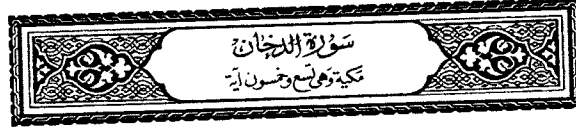 سَوُرَة الدخَان
مَكيَة وَهِى تسَع وخمسون آيَة